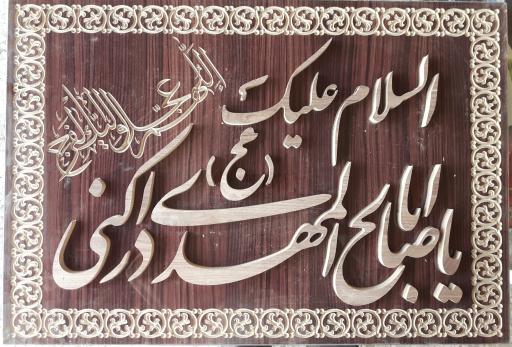 السلام علیک
یا ابا صالح المهدی (عج) ادرکنی
اللهم عجل لولیک الفرج